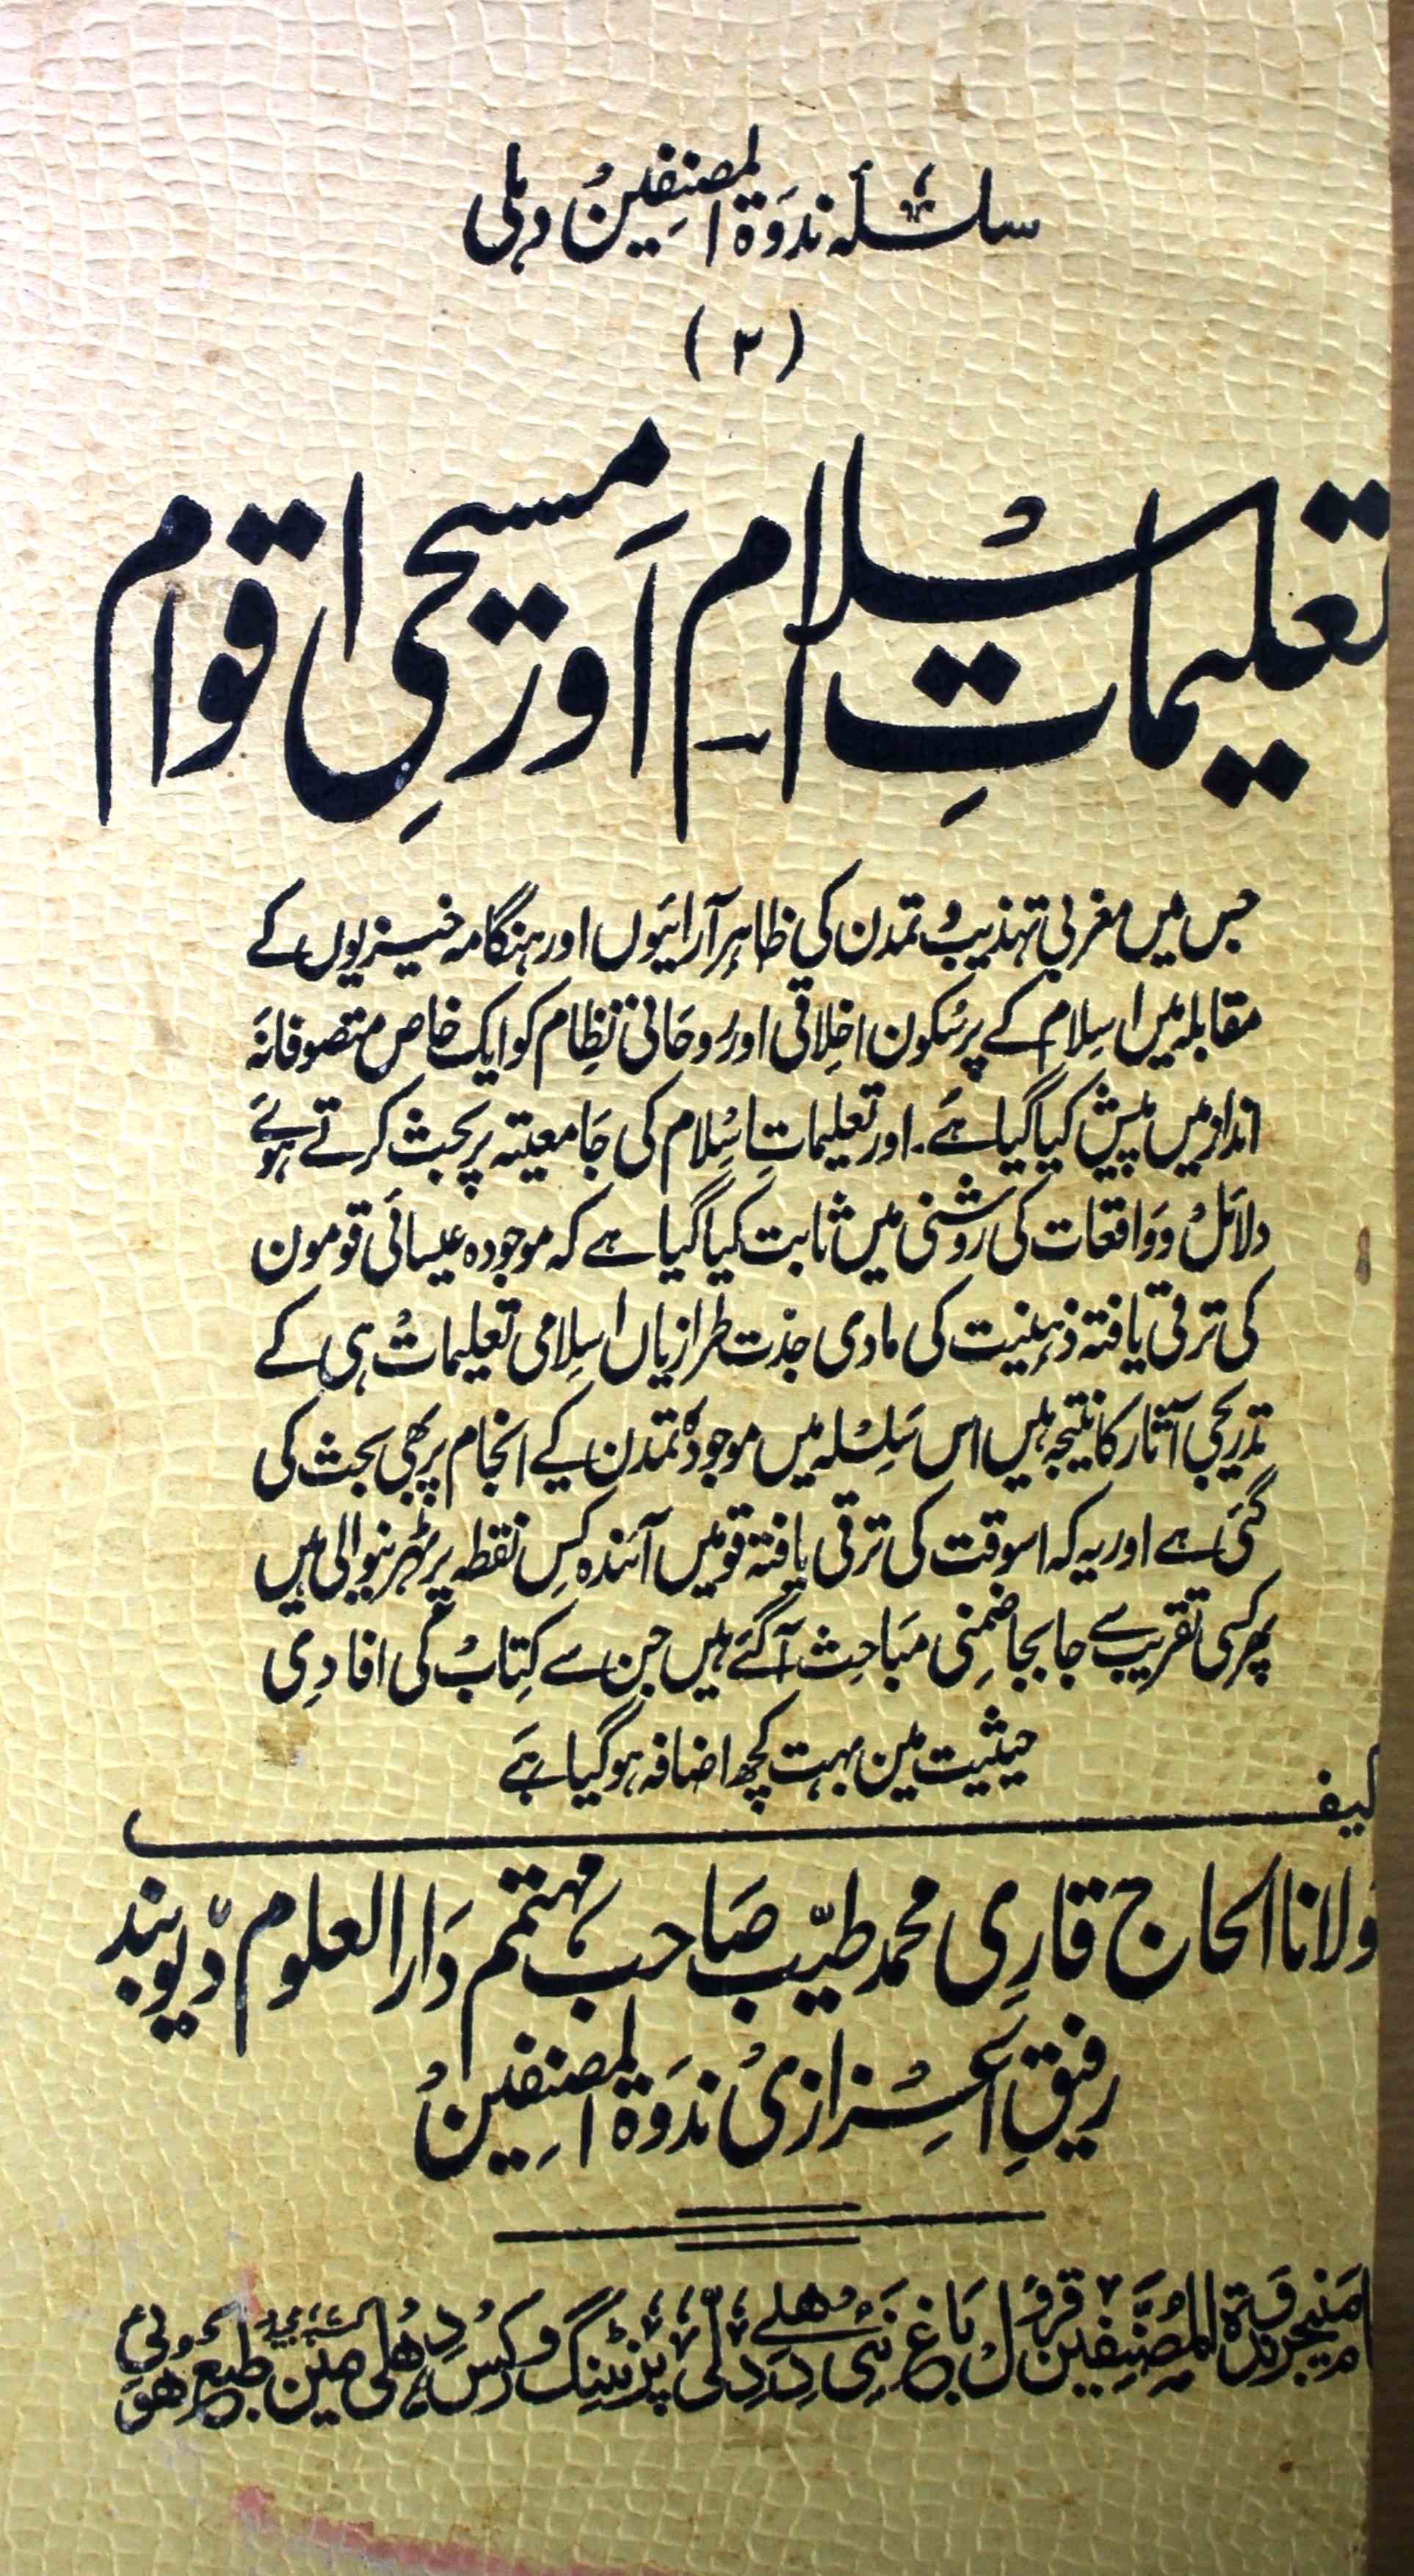 سلسلہ ندوۃ المصنفین دہلی
(۲)
تعلیماتِ اسلام اور مسیحی اقوام
جس میں مغربی تہذیب و تمدن کی ظاہر آرائیوں اور ہنگامہ خیزیوں کے
مقابلہ میں اسلام کے پرسکون اخلاقی اور روحانی نظام کو ایک خاص متصوفانہ
انداز میں پیش کیا گیا ہے۔ اور تعلیماتِ اسلام کی جامعیتہ پر بحث کرتے ہوئے
دلائل و واقعات کی روشنی میں ثابت کیا گیا ہے کہ موجودہ عیسائی قومون
کی ترقی یافتہ ذہنیت کی مادی جدت طرازیاں اسلامی تعلیمات ہی کے
تدریجی آثار کا نتیجہ ہیں اس سلسلہ میں موجودہ تمدن کے انجام پر بھی بحث کی
گئی ہے اور یہ کہ اسوقت کی ترقی یافتہ قومیں آئندہ کس نقطہ پر ٹھہرنیوالی ہیں
پھر کسی تقریب سے جا بجا ضمنی مباحث آگئے ہیں جن سے کتاب کی افادی
حیثیت مین بہت کچھ اضافہ ہوگیا ہے
لیف
ولانا الحاج قاری محمد طیّب صاحب مہتمم دار العلوم دیوبند
رفیقِ اعزازی ندوۃ المصنفین
منیجر ندوۃ المصنفین قرول باغ نئی دہلی دلی پرنٹنگ ورکس دہلی مین طبع ہوئی